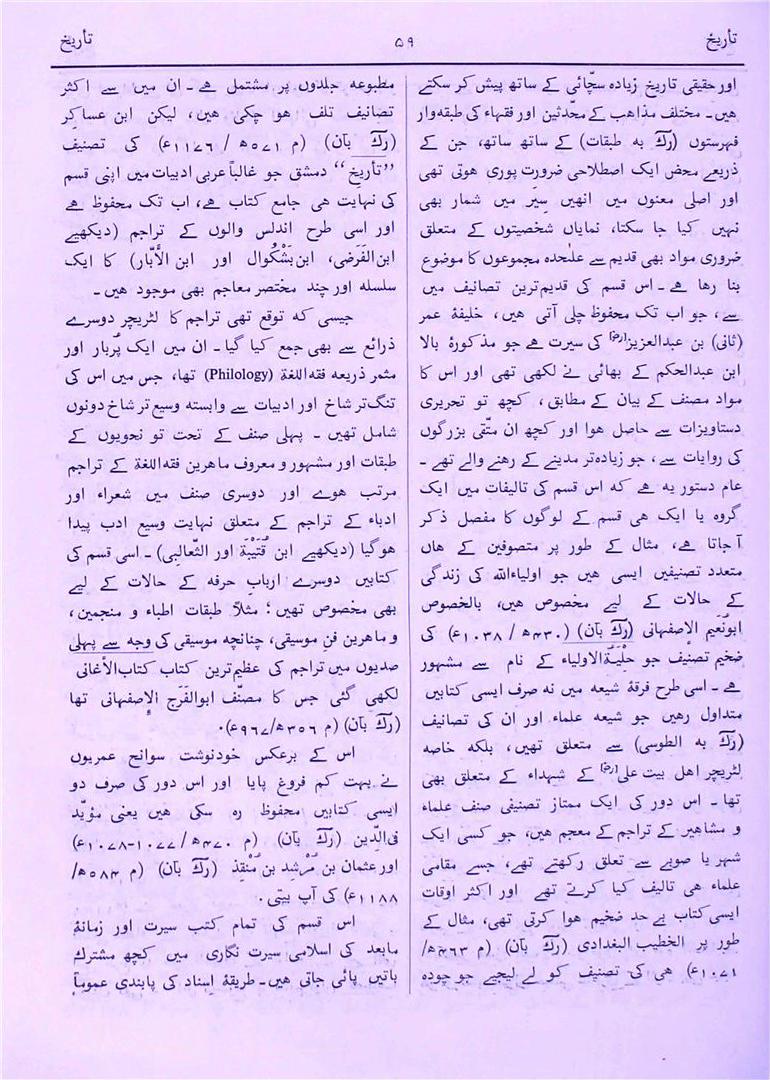 تأریخ ۵۹ تأریخ
اور حقیقی تاریخ زیادہ سچّائی کے ساتھ پیش کر سکتے
ہیں۔ مختلف مذاہب کے محدّثین اور فقہاء کی طبقہ وار
فہرستوں (رکّ بہ طبقات) کے ساتھ ساتھ، جن کے
ذریعے محض ایک اصطلاحی ضرورت پوری ہوتی تھی
اور اصلی معنوں میں انھیں سِیَر میں شمار بھی
نہیں کیا جا سکتا، نمایاں شخصیتوں کے متعلق
ضروری مواد بھی قدیم سے علٰحدہ مجموعوں کا موضوع
بنا رہا ہے۔ اس قسم کی قدیم ترین تصانیف میں
سے، جو اب تک محفوظ چلی آتی ہیں، خلیفۂ عمر
(ثانی) بن عبدالعزیز(رض) کی سیرت ہے جو مذکورۂ بالا
ابن عبدالحکم کے بھائی نے لکھی تھی اور اس کا
مواد مصنف کے بیان کے مطابق، کچھ تو تحریری
دستاویزات سے حاصل ہوا اور کچھ ان متّقی بزرگوں
کی روایات سے، جو زیادہ تر مدینے کے رہنے والے تھے۔
عام دستور یہ ہے کہ اس قسم کی تالیفات میں ایک
گروہ یا ایک ہی قسم کے لوگوں کا مفصل ذکر
آ جاتا ہے، مثال کے طور پر متصوفین کے ہاں
متعدد تصنیفیں ایسی ہیں جو اولیاءاللہ کی زندگی
کے حالات کے لیے مخصوص ہیں، بالخصوص
ابونُعیم الإصفہانی (رکّ بآن) (۴۳۰ھ/۱۰۳۸ء) کی
ضخیم تصنیف جو حلیۃالاولیاء کے نام سے مشہور
ہے۔ اسی طرح فرقۂ شیعہ میں نہ صرف ایسی کتابیں
متداول رہیں جو شیعہ علماء اور ان کی تصانیف
(رکّ بہ الطوسی) سے متعلق تھیں، بلکہ خاصہ
لٹریچر اهل بیت علی(رض) کے شہداء کے متعلق بھی
تھا۔ اس دور کی ایک ممتاز تصنیفی صنف علماء
و مشاہیر کے تراجم کے معجم ہیں، جو کسی ایک
شہر یا صوبے سے تعلق رکھتے تھے، جسے مقامی
علماء ہی تالیف کیا کرتے تھے اور اکثر اوقات
ایسی کتاب بے حد ضخیم ہوا کرتی تھی، مثال کے
طور پر الخطیب البغدادی (رکّ بآن) (م ۴۶۳ھ/
۱۰۷۱ء) ہی کی تصنیف کو لے لیجیے جو چودہ
مطبوعہ جلدوں پر مشتمل ہے۔ ان میں سے اکثر
تصانیف تلف ہو چکی ہیں، لیکن ابن عساکر
(رکّ بآن) (م ۵۷۱ھ/۱۱۷۶ء) کی تصنیف
”تأریخ“ دمشق جو غالباً عربی ادبیات میں اپنی قسم
کی نہایت ہی جامع کتاب ہے، اب تک محفوظ ہے
اور اسی طرح اندلس والوں کے تراجم (دیکھیے
ابن الفَرَضی، ابن بَشْکُوال اور ابن الأبّار) کا ایک
سلسلہ اور چند مختصر معاجم بھی موجود ہیں۔
جیسی کہ توقع تھی تراجم کا لٹریچر دوسرے
ذرائع سے بھی جمع کیا گیا۔ ان میں ایک پُربار اور
مثمر ذریعہ فقہ اللغة (Philology) تھا، جس میں اس کی
تنگ تر شاخ اور ادبیات سے وابستہ وسیع تر شاخ دونوں
شامل تھیں۔ پہلی صنف کے تحت تو نحویوں کے
طبقات اور مشہور و معروف ماہرین فقہ اللغة کے تراجم
مرتب ہوے اور دوسری صنف میں شعراء اور
ادباء کے تراجم کے متعلق نہایت وسیع ادب پیدا
ہوگیا (دیکھیے ابن قُتَیْبَة اور الثعالبی)۔ اسی قسم کی
کتابیں دوسرے اربابِ حرفہ کے حالات کے لیے
بھی مخصوص تھیں؛ مثلاً طبقات اطباء و منجمین،
و ماہرین فنِ موسیقی، چنانچہ موسیقی کی وجہ سے پہلی
صدیوں میں تراجم کی عظیم ترین کتاب کتاب الأغانی
لکھی گئی جس کا مصنّف ابوالفَرَج الإصفہانی تھا
(رکّ بآن) (م ۳۵۶ھ/۹۶۷ء)۔
اس کے برعکس خودنوشت سوانح عمریوں
نے بہت کم فروغ پایا اور اس دور کی صرف دو
ایسی کتابیں محفوظ رہ سکی ہیں یعنی مؤیّد
فی الدّین (رکّ بآن) (م ۴۷۰ھ/۱۰۷۷-۱۰۷۸ء)
اور عثمان بن مُرْشد بن مُنْقِذ (رکّ بآن) (م ۵۸۴ھ/
۱۱۸۸ء) کی آپ بیتی۔
اس قسم کی تمام کتب سیرت اور زمانۂ
مابعد کی اسلامی سیرت نگاری میں کچھ مشترک
باتیں پائی جاتی ہیں۔ طریقۂ اسناد کی پابندی عموماً